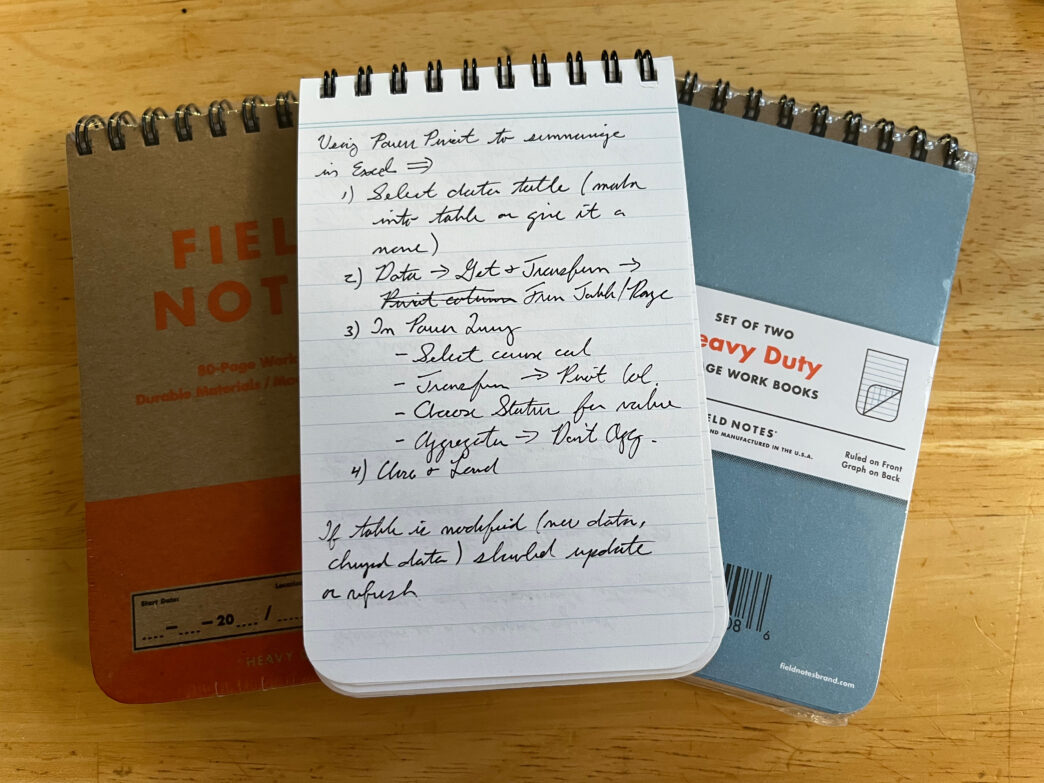 Using Power Pivot to summarize
in Excel ⇒
1) Select data table (make
into table or give it a
name)
2) Data → Get & Transform →
Pivot column From Table/Range
3) In Power Query
- Select course col
- Transform → Pivot Col.
- Choose Status for value
- Aggregate → Don't Agg.
4) Close & Load
If table is modified (new data,
changed data) should update
or refresh
FIEL
NOT
80-Page Work
Durable Materials / Mo
Start Date:
Location
-20 /
HEAVY
SET OF TWO
eavy Duty
GE WORK BOOKS
ELD NOTES
ND MANUFACTURED IN THE U.S.A.
Ruled on Front
Graph on Back
08 6
fieldnotesbrand.com